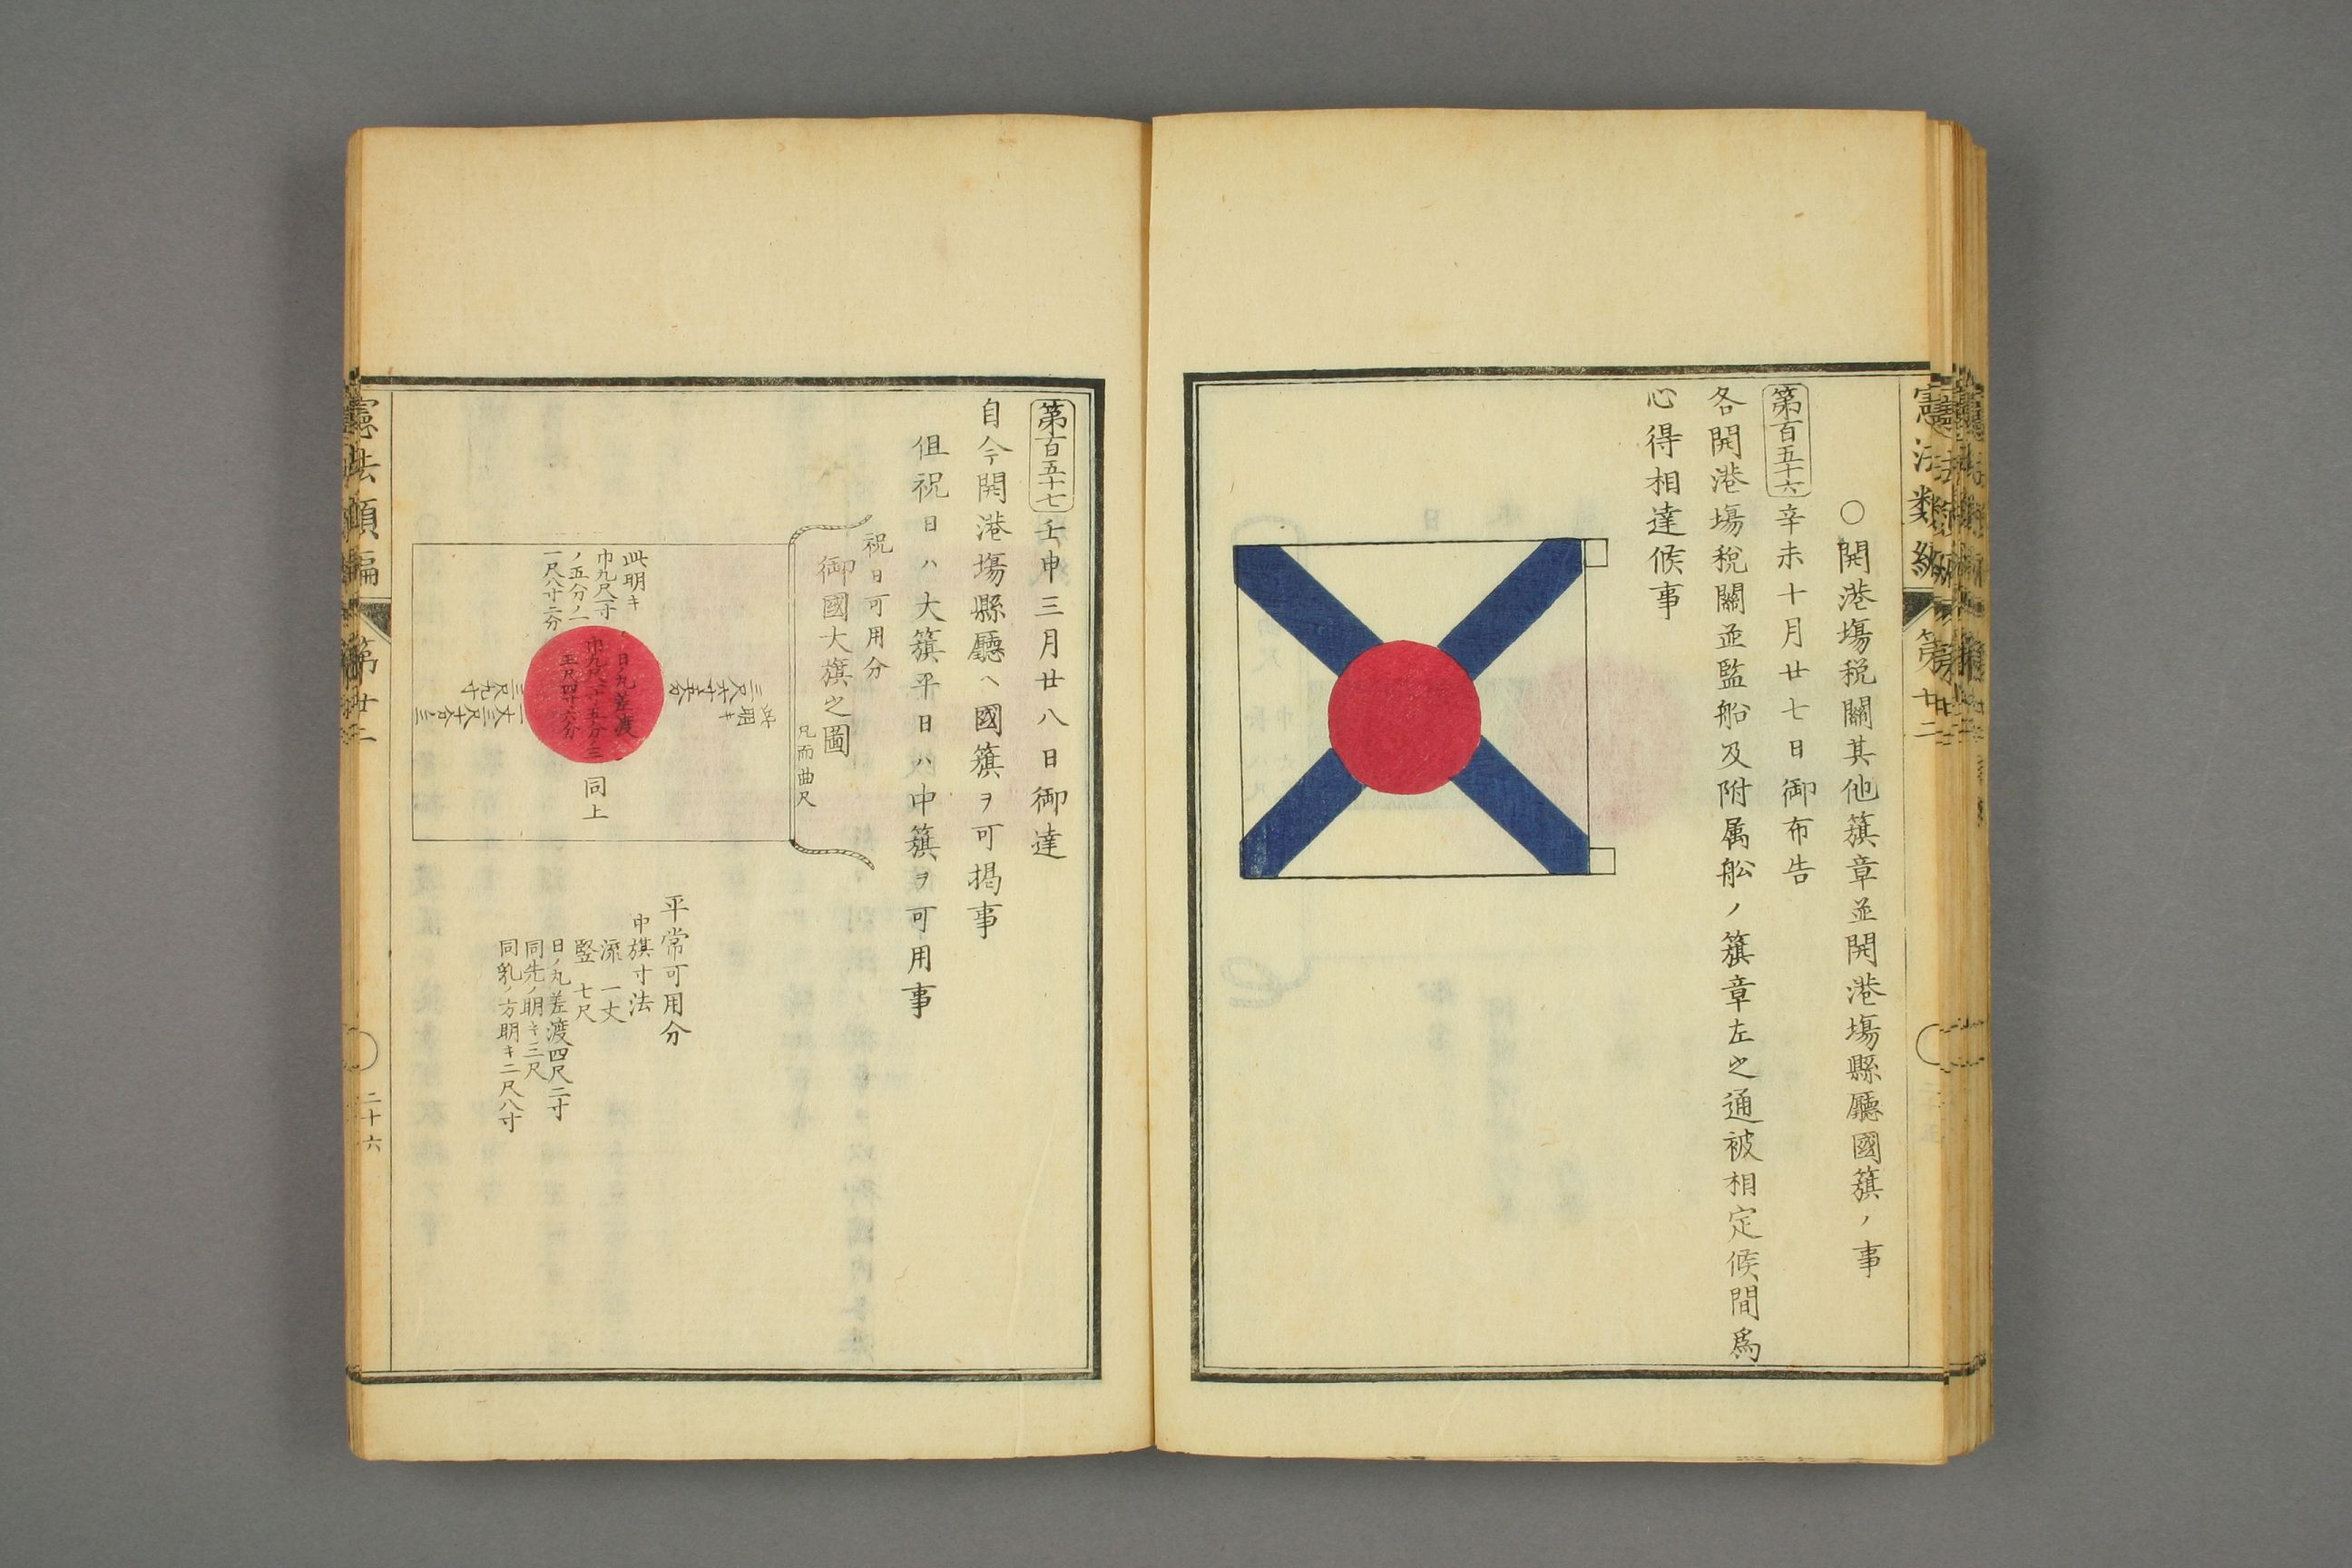 憲法類編
第廿二
○開港場税關其他籏章並開港場縣廳國籏ノ事
第百五十六 辛未十月廿七日御布告
各開港場税關並監船及附属舩ノ籏章左之通被相定候間爲
心得相達候事
第百五十七 壬申三月廿八日御達
自今開港場縣廳ヘ國籏ヲ可揭事
但祝日ハ大籏平日ハ中籏ヲ可用事
祝日可用分
御國大旗之圖
尺而曲尺
此明キ
巾九尺一寸
ノ五分ノ一
一尺八寸二分
日ノ丸差渡
巾九尺一寸五分ノ三
五尺四寸六分
同上
此明キ
平常可用分
中旗寸法
流一丈
竪七尺
日ノ丸差渡四尺二寸
同先ノ明キ三尺
同乳ノ方明キ二尺八寸
憲法類編
第廿二
二十六